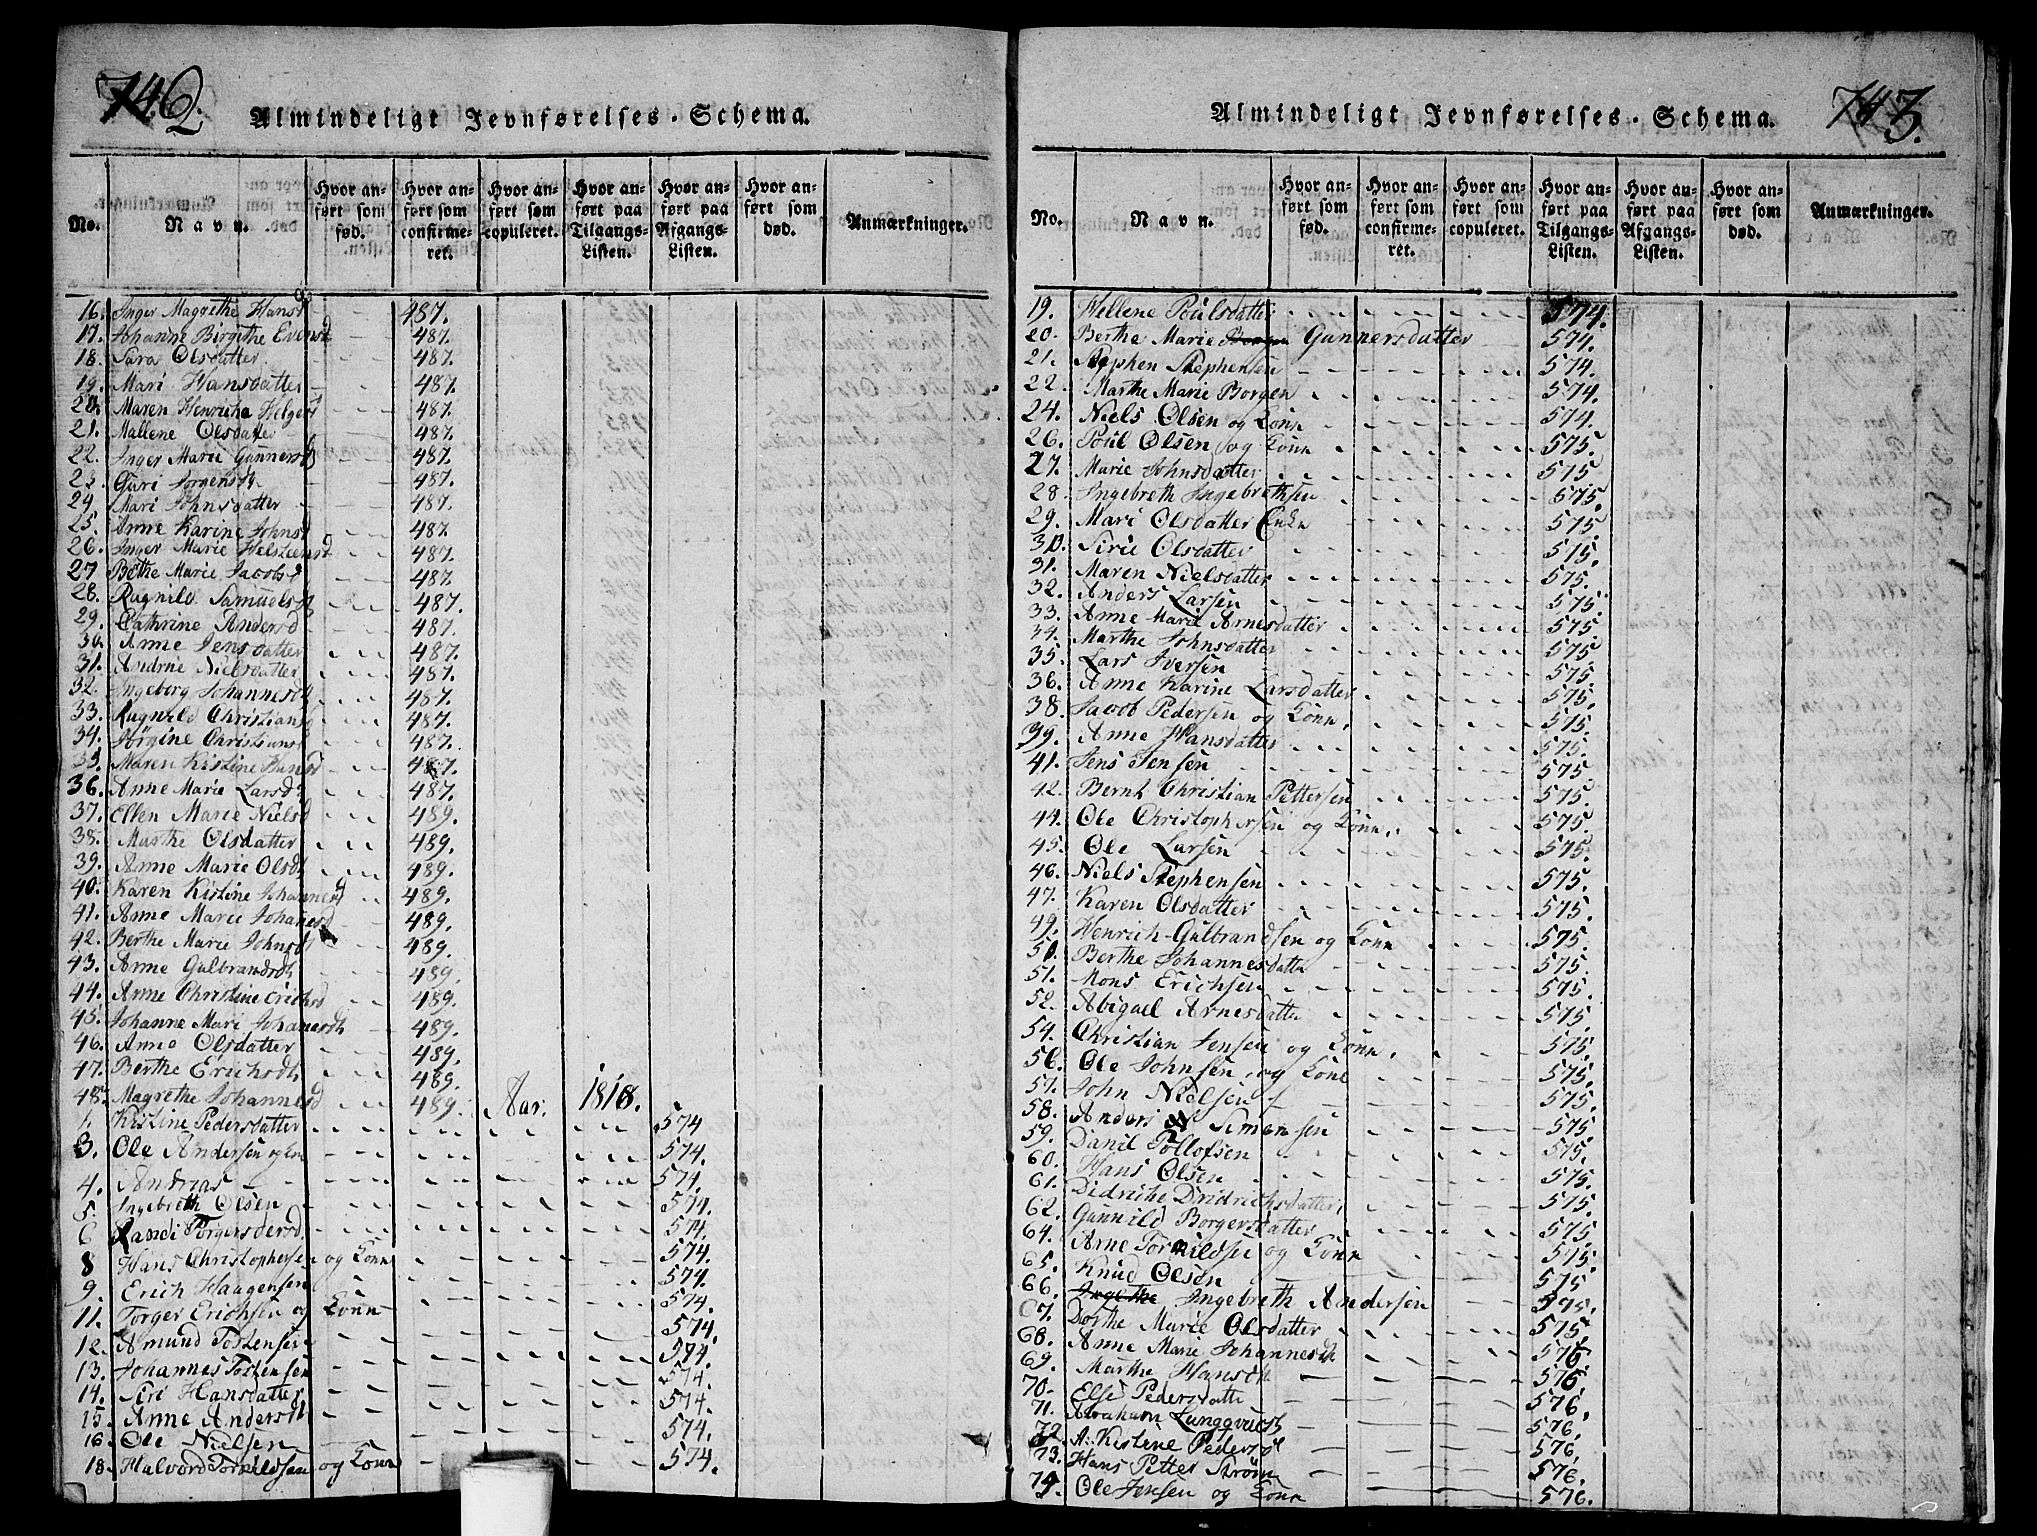 742.
Almindeligt Jevnførelses-Schema.
No. Navn. Hvor anført som fød. Hvor anført som confirmeret. Hvor anført som copuleret. Hvor anført paa Tilgangs-Listen. Hvor anført paa Afgangs-Listen. Hvor anført som død. Anmærkninger.
16. Inger Magrethe Hansd 487.
17. Johanne Birgithe Evensd 487.
18. Sara Olsdatter 487.
19. Mari Hansdatter 487.
20. Maren Henriche Helgesd 487.
21. Mallene Olsdatter 487.
22. Inger Marie Gunnersd 487.
23. Guri Jorgensdt 487.
24. Mari Johnsdatter 487.
25. Anne Karine Johnsd 487.
26. Inger Marie Helsteensd 487.
27 Bethe Marie Jacobsd 487.
28. Ragnild Samuelsd 487.
29. Cathrine Andersd 487.
30. Anne Jensdatter 487.
31. Andrne Nielsdatter 487.
32. Ingeborg Johannesd 487.
33. Ragnild Christiansd 487.
34. Jørgine Christiansd 487.
35. Maren Kistine Hansd 487.
36. Anne Marie Larsd 487.
37. Ellen Marie Nielsd 489.
38. Marthe Olsdatter 489.
39. Anne Marie Olsdt 489.
40. Karen Kistine Johannesd 489.
41. Anne Marie Johanesd 489.
42. Berthe Marie Johnsdt 489.
43. Anne Gulbrandsdt 489.
44. Anne Christine Erichsd 489.
45. Johanne Mari Johanesdt 489.
46. Anne Olsdatter 489.
47. Berthe Erichsdt 489.
48. Magrethe Johannesd 489. Aar. 1818.
1. Kistine Pedersdatter 574
3. Ole Andersen og 574.
4. Andreas 574.
5. Ingebreth Olsen 574.
6 Randi Torgersdersd 574.
8 Hans Christophersen og Konn 574.
9. Erich Haagensen 574.
11. Torger Erichsen og Konn 574.
12. Amund Tostensen 574.
13. Johannes Tostensen 574.
14. Siri Hansdatter 574.
15. Anne Andersdt 574.
16. Ole Nielsen 574.
18. Halvord Torkildsen og Konn 574.
743.
Almindeligt Jevnførelses-Schema.
No. Navn. Hvor anført som fød. Hvor anført som confirmeret. Hvor anført som copuleret. Hvor anført paa Tilgangs-Listen. Hvor anført paa Afgangs-Listen. Hvor anført som død. Anmærkninger.
19. Hellene Poulsdatter 574.
20. Berthe Marie Borgen Gunnersdatter 574.
21. Stephen Stephensen 574.
22. Marthe Marie Borgen 574.
24. Niels Olsen og Konn 574.
26. Poul Olsen og Konn 575.
27. Marie Johnsdatter 575
28. Ingebreth Ingebrethsen 575.
29. Mari Olsdatter Enke 575.
30. Sirie Olsdatter 575.
31. Maren Nielsdatter 575.
32. Anders Larsen 575.
33. Anne Marie Arnesdatter 575.
34. Marthe Johnsdatter 575
35. Lars Iversen 575.
36. Anne Karine Larsdatter 575.
38. Jacob Pedersen og Konn, 575.
39. Anne Hansdatter 575.
41. Jens Jensen 575
42. Bernt Christian Pettersen 575.
44. Ole Christophersen og Konn, 575.
45. Ole Larsen 575.
46. Niels Stephensen 575.
47. Karen Olsdatter 575.
49. Henrich Gulbrandsen og Konn 575.
50. Berthe Johannesdatter 575.
51. Mons Erichsen 575.
52. Abigael Arnesdatter 575.
54. Christian Jensen og Konn, 575.
56. Ole Johnsen og Kone 575.
57. John Nielsen 575.
58. Anders Simensen 575
59. Danil Tollofsen 575.
60. Hans Olsen 575.
61. Didriche Dridrichsdatter 575.
62. Gunnild Borgersdatter 575.
64. Arne Torkildsen og Konn 575.
65. Knud Olsen 575
66. Ingebreth Andersen 575.
67. Dorthe Marie Olsdatter 575.
68. Anne Marie Johannesdt 576
69. Marthe Hansdt 576.
70. Else Pedersdatte 576.
71. Abraham Lungqvist 576.
72. A: Kistine Pedersd 576.
73. Hans Petter Strøm 576.
75. Ole Jensen og Konn 576.